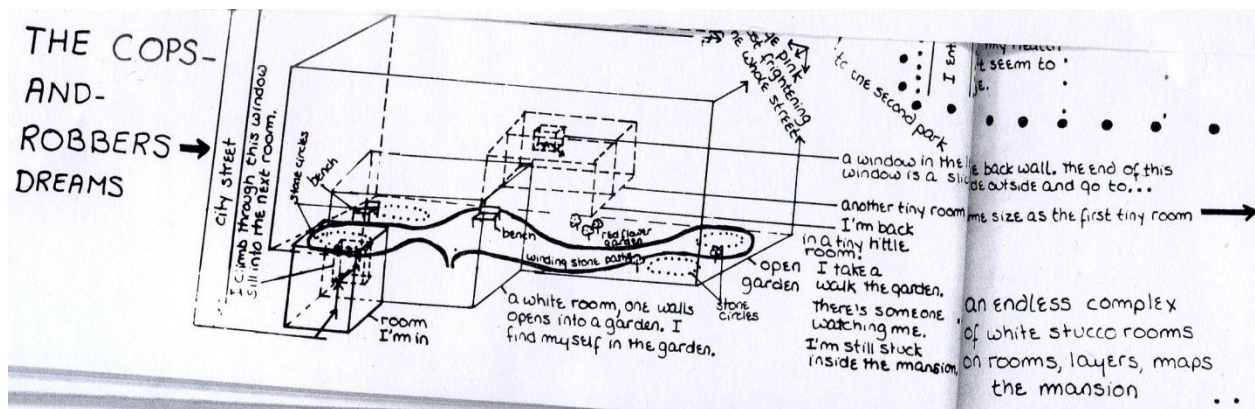 THE COPS-
AND-
ROBBERS
DREAMS
city street
I climb through this window
sill into the next room.
stone circles
bench
bench
red flower
garden
winding stone paths
open
garden
stone
circles
room
I'm in
a white room, one walls
opens into a garden. I
find myself in the garden.
pink
frightening
whole street
to one second park
I ent
t seem to
a window in the
window is a
e back wall. The end of this
de outside and go to...
another tiny room
me size as the first tiny room
I'm back
in a tiny little
room!
I take a
walk the garden.
There's someone
watching me.
I'm still stuck
inside the mansion,
an endless complex
of white stucco rooms
on rooms, layers, maps
the mansion